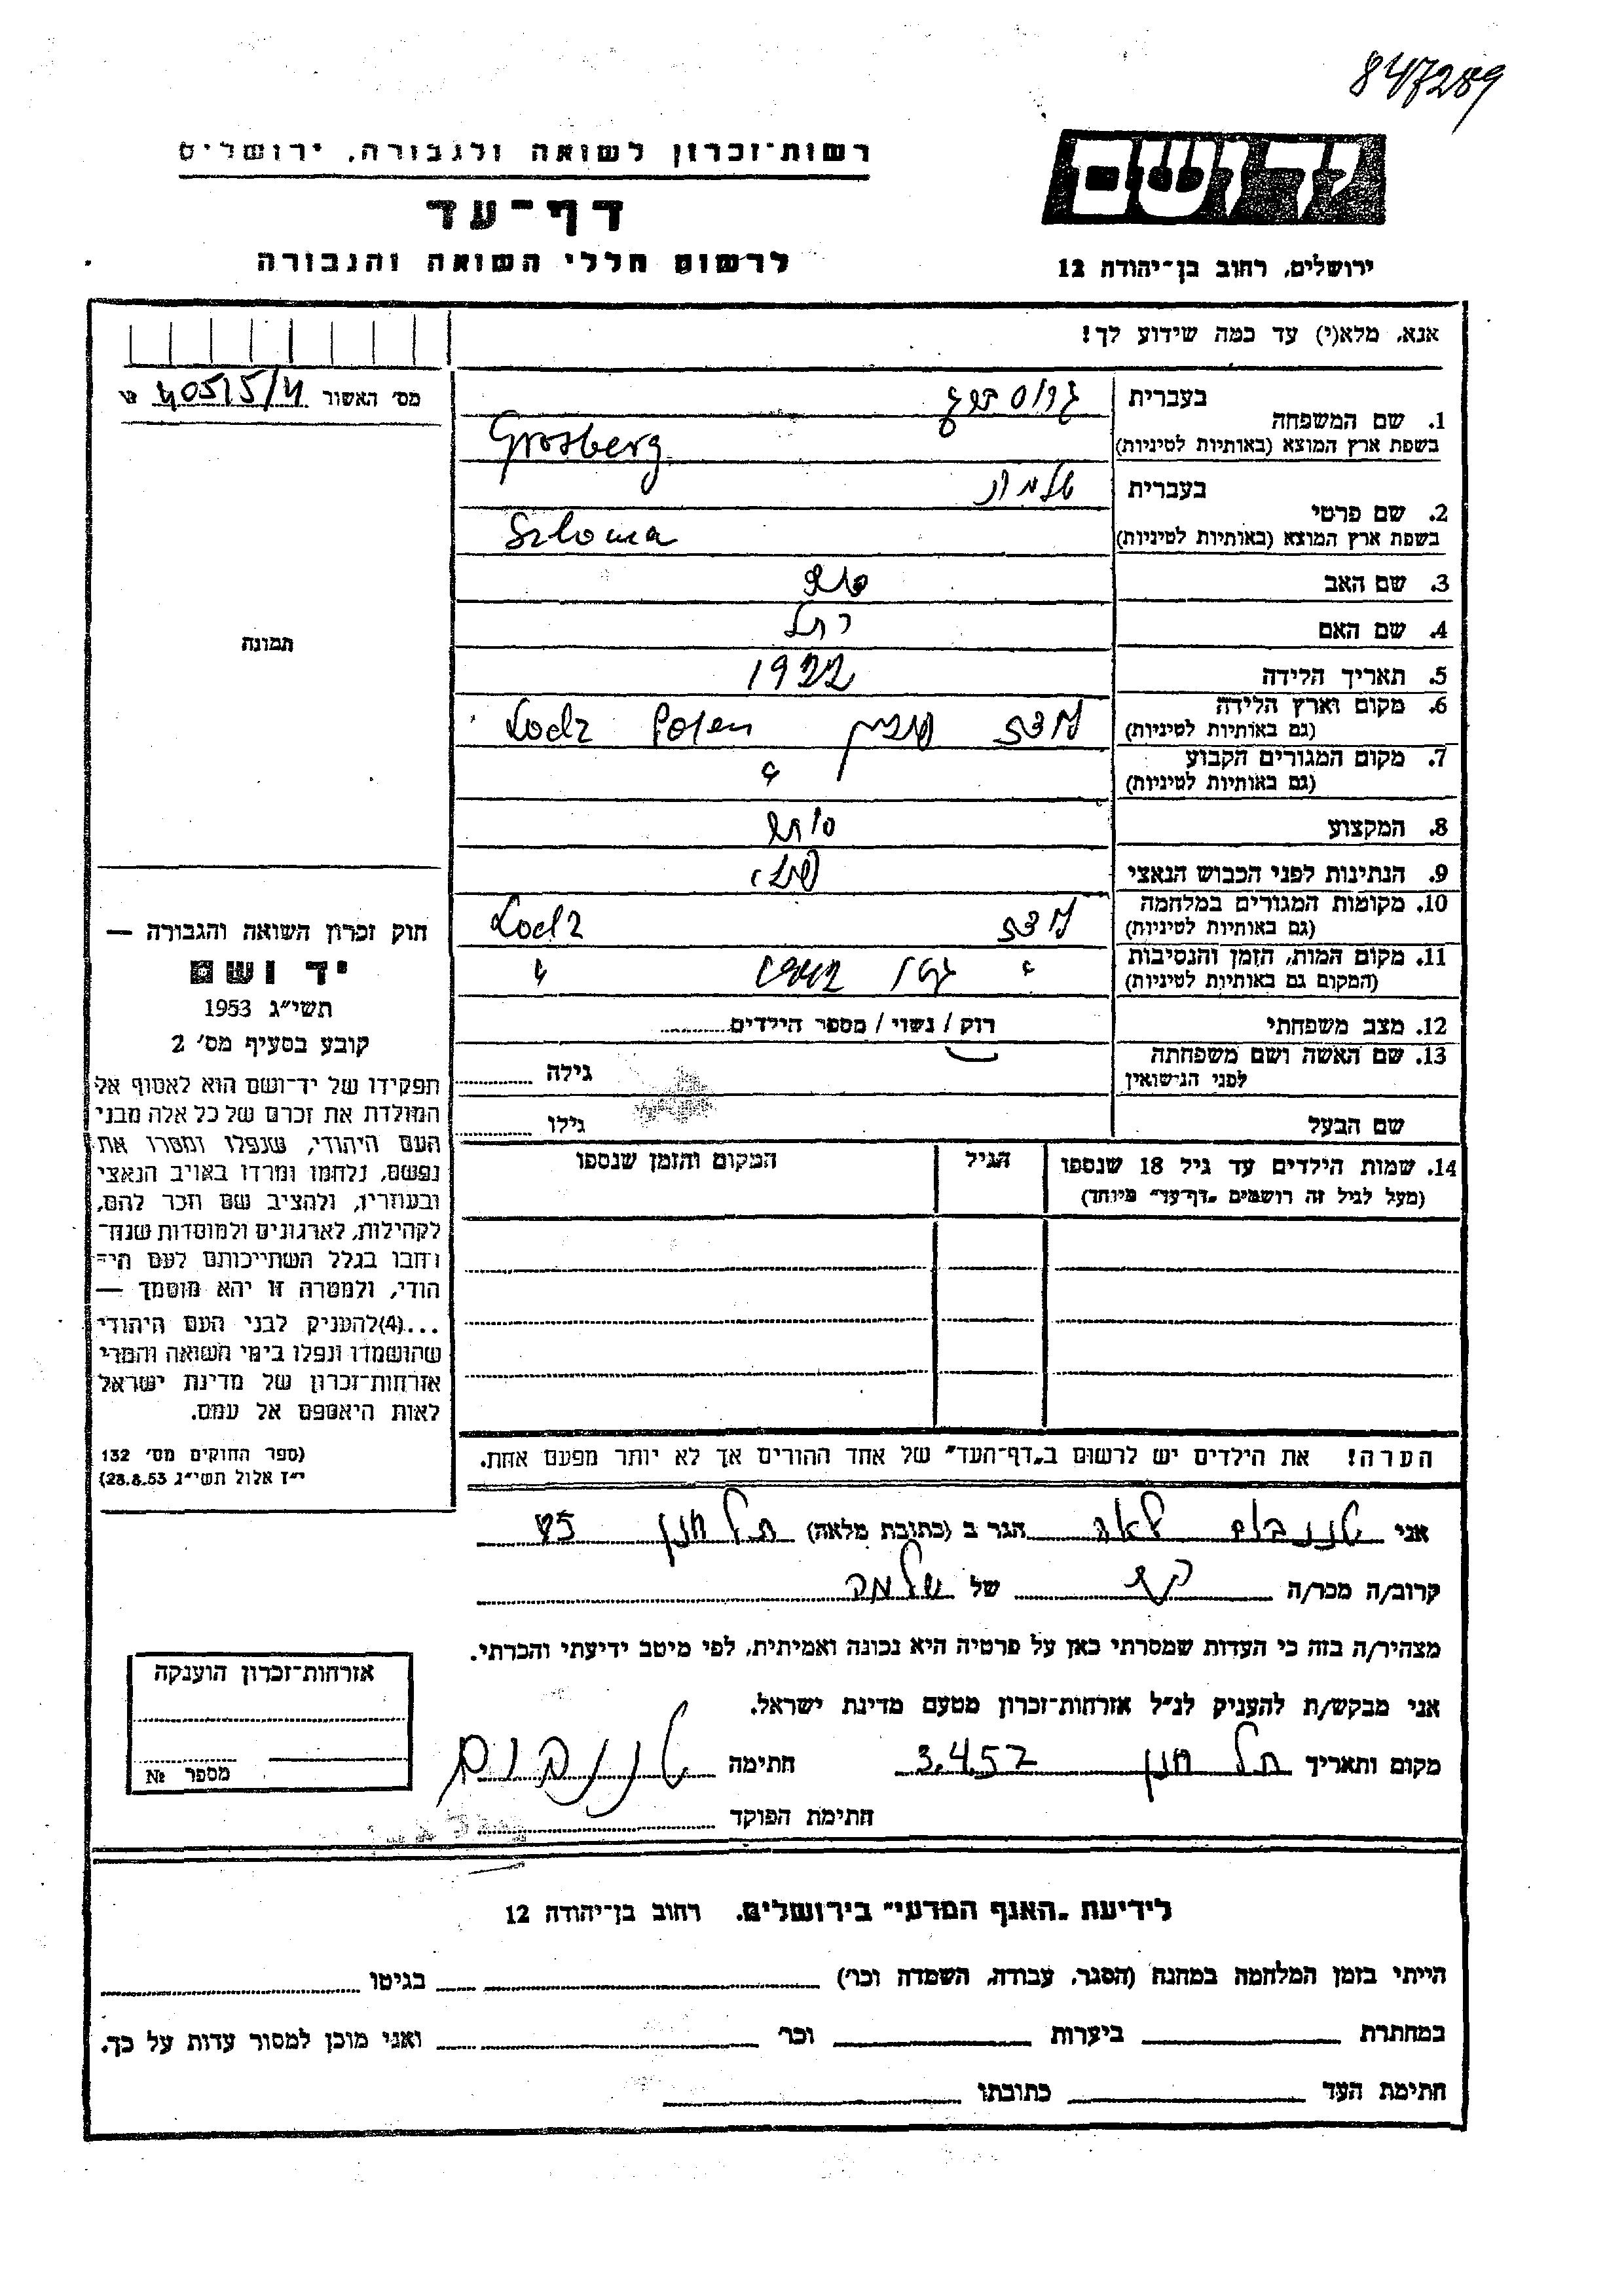 847289
יד ושם
רשות־זכרון לשואה ולגבורה, ירושלים
דף־עד
לרשום חללי השואה והגבורה
ירושלים, רחוב בן־יהודה 12
אנא, מלא(י) עד כמה שידוע לך!
מס׳ האשור
1. שם המשפחה
בעברית
בשפת ארץ המוצא (באותיות לטיניות)
Grosberg
2. שם פרטי
בעברית שלמה
בשפת ארץ המוצא (באותיות לטיניות)
Szloma
3. שם האב
4. שם האם רחל
5. תאריך הלידה 1922
6. מקום וארץ הלידה לודז פולין Lodz Polen
(גם באותיות לטיניות)
7. מקום המגורים הקבוע "
(גם באותיות לטיניות)
8. המקצוע
9. הנתינות לפני הכבוש הנאצי פולני
10. מקומות המגורים במלחמה לודז Lodz
(גם באותיות לטיניות)
11. מקום המות, הזמן והנסיבות " גטו 1942 "
(המקום גם באותיות לטיניות)
12. מצב משפחתי רוק / נשוי / מספר הילדים
13. שם האשה ושם משפחתה
לפני הנישואין גילה
שם הבעל גילו
14. שמות הילדים עד גיל 18 שנספו הגיל המקום והזמן שנספו
(מעל לגיל זה רושמים „דף־עד״ מיוחד)
הערה! את הילדים יש לרשום ב„דף־העד״ של אחד ההורים אך לא יותר מפעם אחת.
תמונה
חוק זכרון השואה והגבורה —
יד ושם
תשי״ג 1953
קובע בסעיף מס׳ 2
תפקידו של יד־ושם הוא לאסוף אל
המולדת את זכרם של כל אלה מבני
העם היהודי, שנפלו ומסרו את
נפשם, נלחמו ומרדו באויב הנאצי
ובעוזריו, ולהציב שם וזכר להם,
לקהילות, לארגונים ולמוסדות שנח־
רבו בגלל השתייכותם לעם הי־
הודי, ולמטרה זו יהא מוסמך —
...(4)להעניק לבני העם היהודי
שהושמדו ונפלו בימי השואה והמרי
אזרחות־זכרון של מדינת ישראל
לאות היאספם אל עמם.
(ספר החוקים מס׳ 132
י״ז אלול תשי״ג 28.8.53)
אני טננבוים לאה הגר ב (כתובת מלאה) תל חנן
קרוב/ה מכר/ה של שלמה
מצהיר/ה בזה כי העדות שמסרתי כאן על פרטיה היא נכונה ואמיתית, לפי מיטב ידיעתי והכרתי.
אני מבקש/ת להעניק לנ״ל אזרחות־זכרון מטעם מדינת ישראל.
מקום ותאריך תל חנן 3.4.57 חתימה טננבוים
חתימת הפוקד
אזרחות־זכרון הוענקה
מספר №
לידיעת „האגף המדעי״ בירושלים, רחוב בן־יהודה 12
הייתי בזמן המלחמה במחנה (הסגר, עבודה, השמדה וכו׳) בגיטו
במחתרת ביערות וכו׳ ואני מוכן למסור עדות על כך.
חתימת העד כתובתו